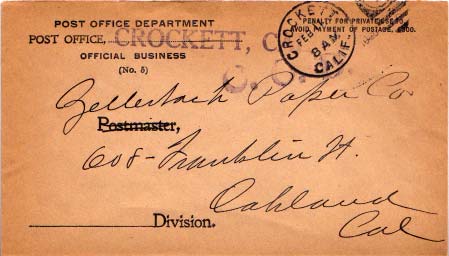 POST OFFICE DEPARTMENT
POST OFFICE, CROCKETT, C
OFFICIAL BUSINESS
(No. 5)
PENALTY FOR PRIVATE USE TO
AVOID PAYMENT OF POSTAGE, $300.
CROCKETT
FEB
8 AM
CALIF.
Zellerbach Paper Co
Postmaster,
608 - Franklin St.
Oakland
Division.
Cal